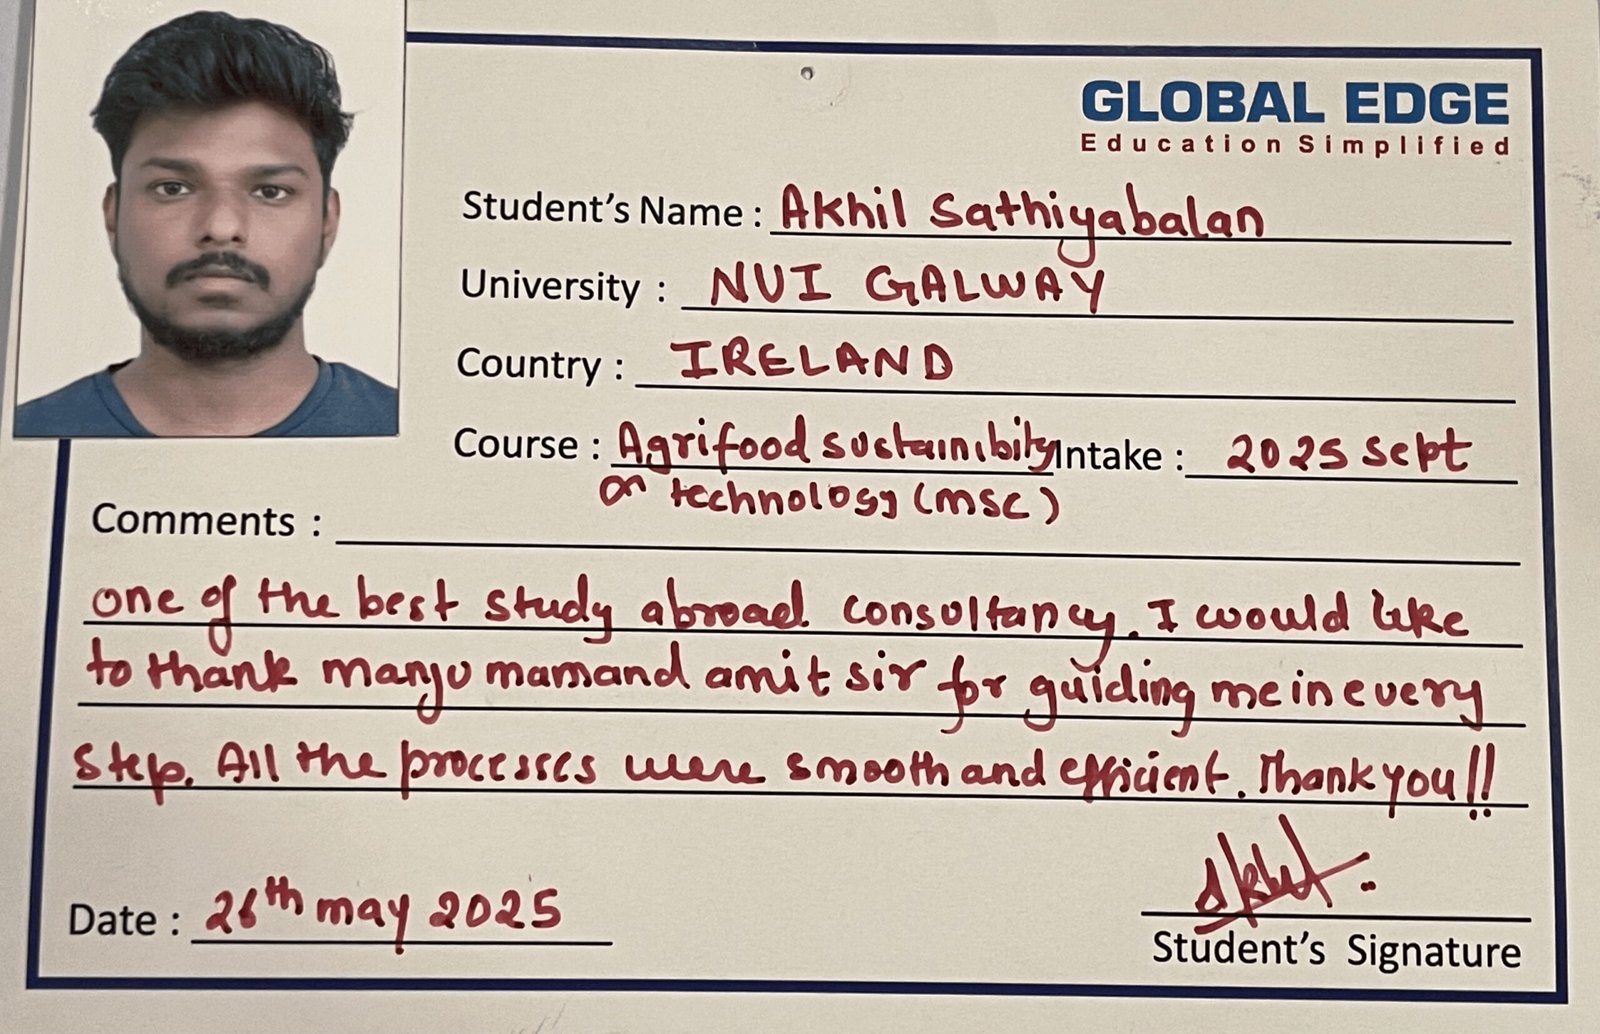 GLOBAL EDGE
Education Simplified
Student's Name : Akhil Sathiyabalan
University : NUI GALWAY
Country : IRELAND
Course : Agrifood sustainibity Intake : 2025 Sept
on technology (msc)
Comments :
one of the best study abroad consultancy. I would like
to thank manju mam and amit sir for guiding me in every
step. All the processes were smooth and efficient. Thank you!!
Date : 26th may 2025
Akhil
Student's Signature